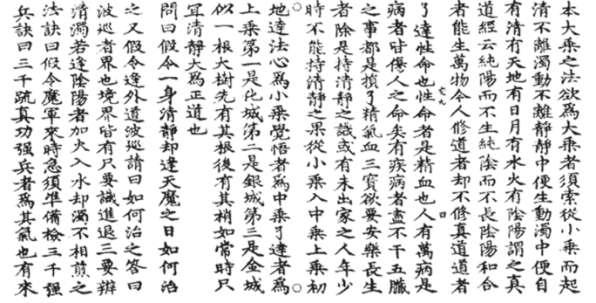 本大乘之法欲爲大乘者須索從小乘而起
清不離濁動不離靜靜中便生動濁中便自
有清有天地有日月有水火有陰陽謂之真
道經云純陽而不生純陰而不長陰陽和合
者能生萬物今人修道者却不修真道道者
了達性命也性命者是精血也人有萬病是
病者時傷人之命矣有疾病者盡不干五臟
之事都是損了精氣血三寶欲要安樂長生
者除是持清靜之識或有未出家之人年少
時不能持清靜之果從小乘入中乘上乘初
地達法心爲小乘覺悟者爲中乘了達者爲
上乘第一是化城第二是銀城第三是金城
似一根大樹先有其根後有其梢如常時只
宜清靜大爲正道也
問曰假令一身清靜却逢天魔之日如何治
之又假令逢外道波巡請曰如何治之荅曰
波巡者界也境界皆有只要識進退三要辨
清濁若逢陰陽者加火入水却濁不相煎之
法訣曰假令魔軍來時急須準備檢三千強
兵訣曰三千疏真功强兵者爲其氣也有來